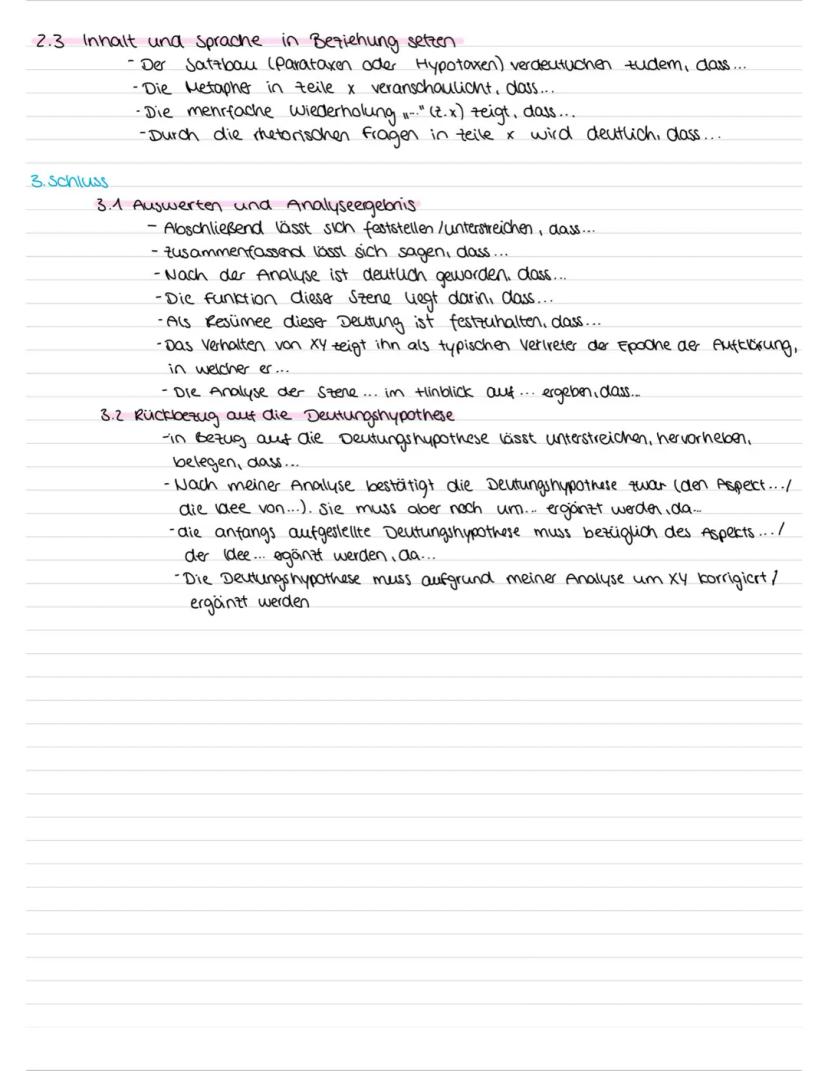 2.3 Inhalt und Sprache in Beziehung setzen
- Der Satzbau (Parataxen oder Hypotaxen) verdeutlichen zudem, dass...
- Die Metapher in Zeile x veranschaulicht, dass...
- Die mehrfache Wiederholung „..." (Z.x) zeigt, dass...
- Durch die rhetorischen Fragen in Zeile x wird deutlich, dass...
3. Schluss
3.1 Auswerten und Analyseergebnis
- Abschließend lässt sich feststellen/unterstreichen, dass...
- Zusammenfassend lässt sich sagen, dass...
- Nach der Analyse ist deutlich geworden, dass...
- Die Funktion dieser Szene liegt darin, dass...
- Als Resümee dieser Deutung ist festzuhalten, dass...
- Das Verhalten von XY zeigt ihn als typischen Vertreter der Epoche der Aufklärung,
in welcher er...
- Die Analyse der Szene ... im Hinblick auf ... ergeben, dass...
3.2 Rückbezug auf die Deutungshypothese
- in Bezug auf die Deutungshypothese lässt unterstreichen, hervorheben,
belegen, dass...
- Nach meiner Analyse bestätigt die Deutungshypothese zwar (den Aspekt.../
die Idee von...). Sie muss aber noch um... ergänzt werden, da...
- die anfangs aufgestellte Deutungshypothese muss bezüglich des Aspekts.../
der Idee... egänzt werden, da...
- Die Deutungshypothese muss aufgrund meiner Analyse um XY korrigiert/
ergänzt werden